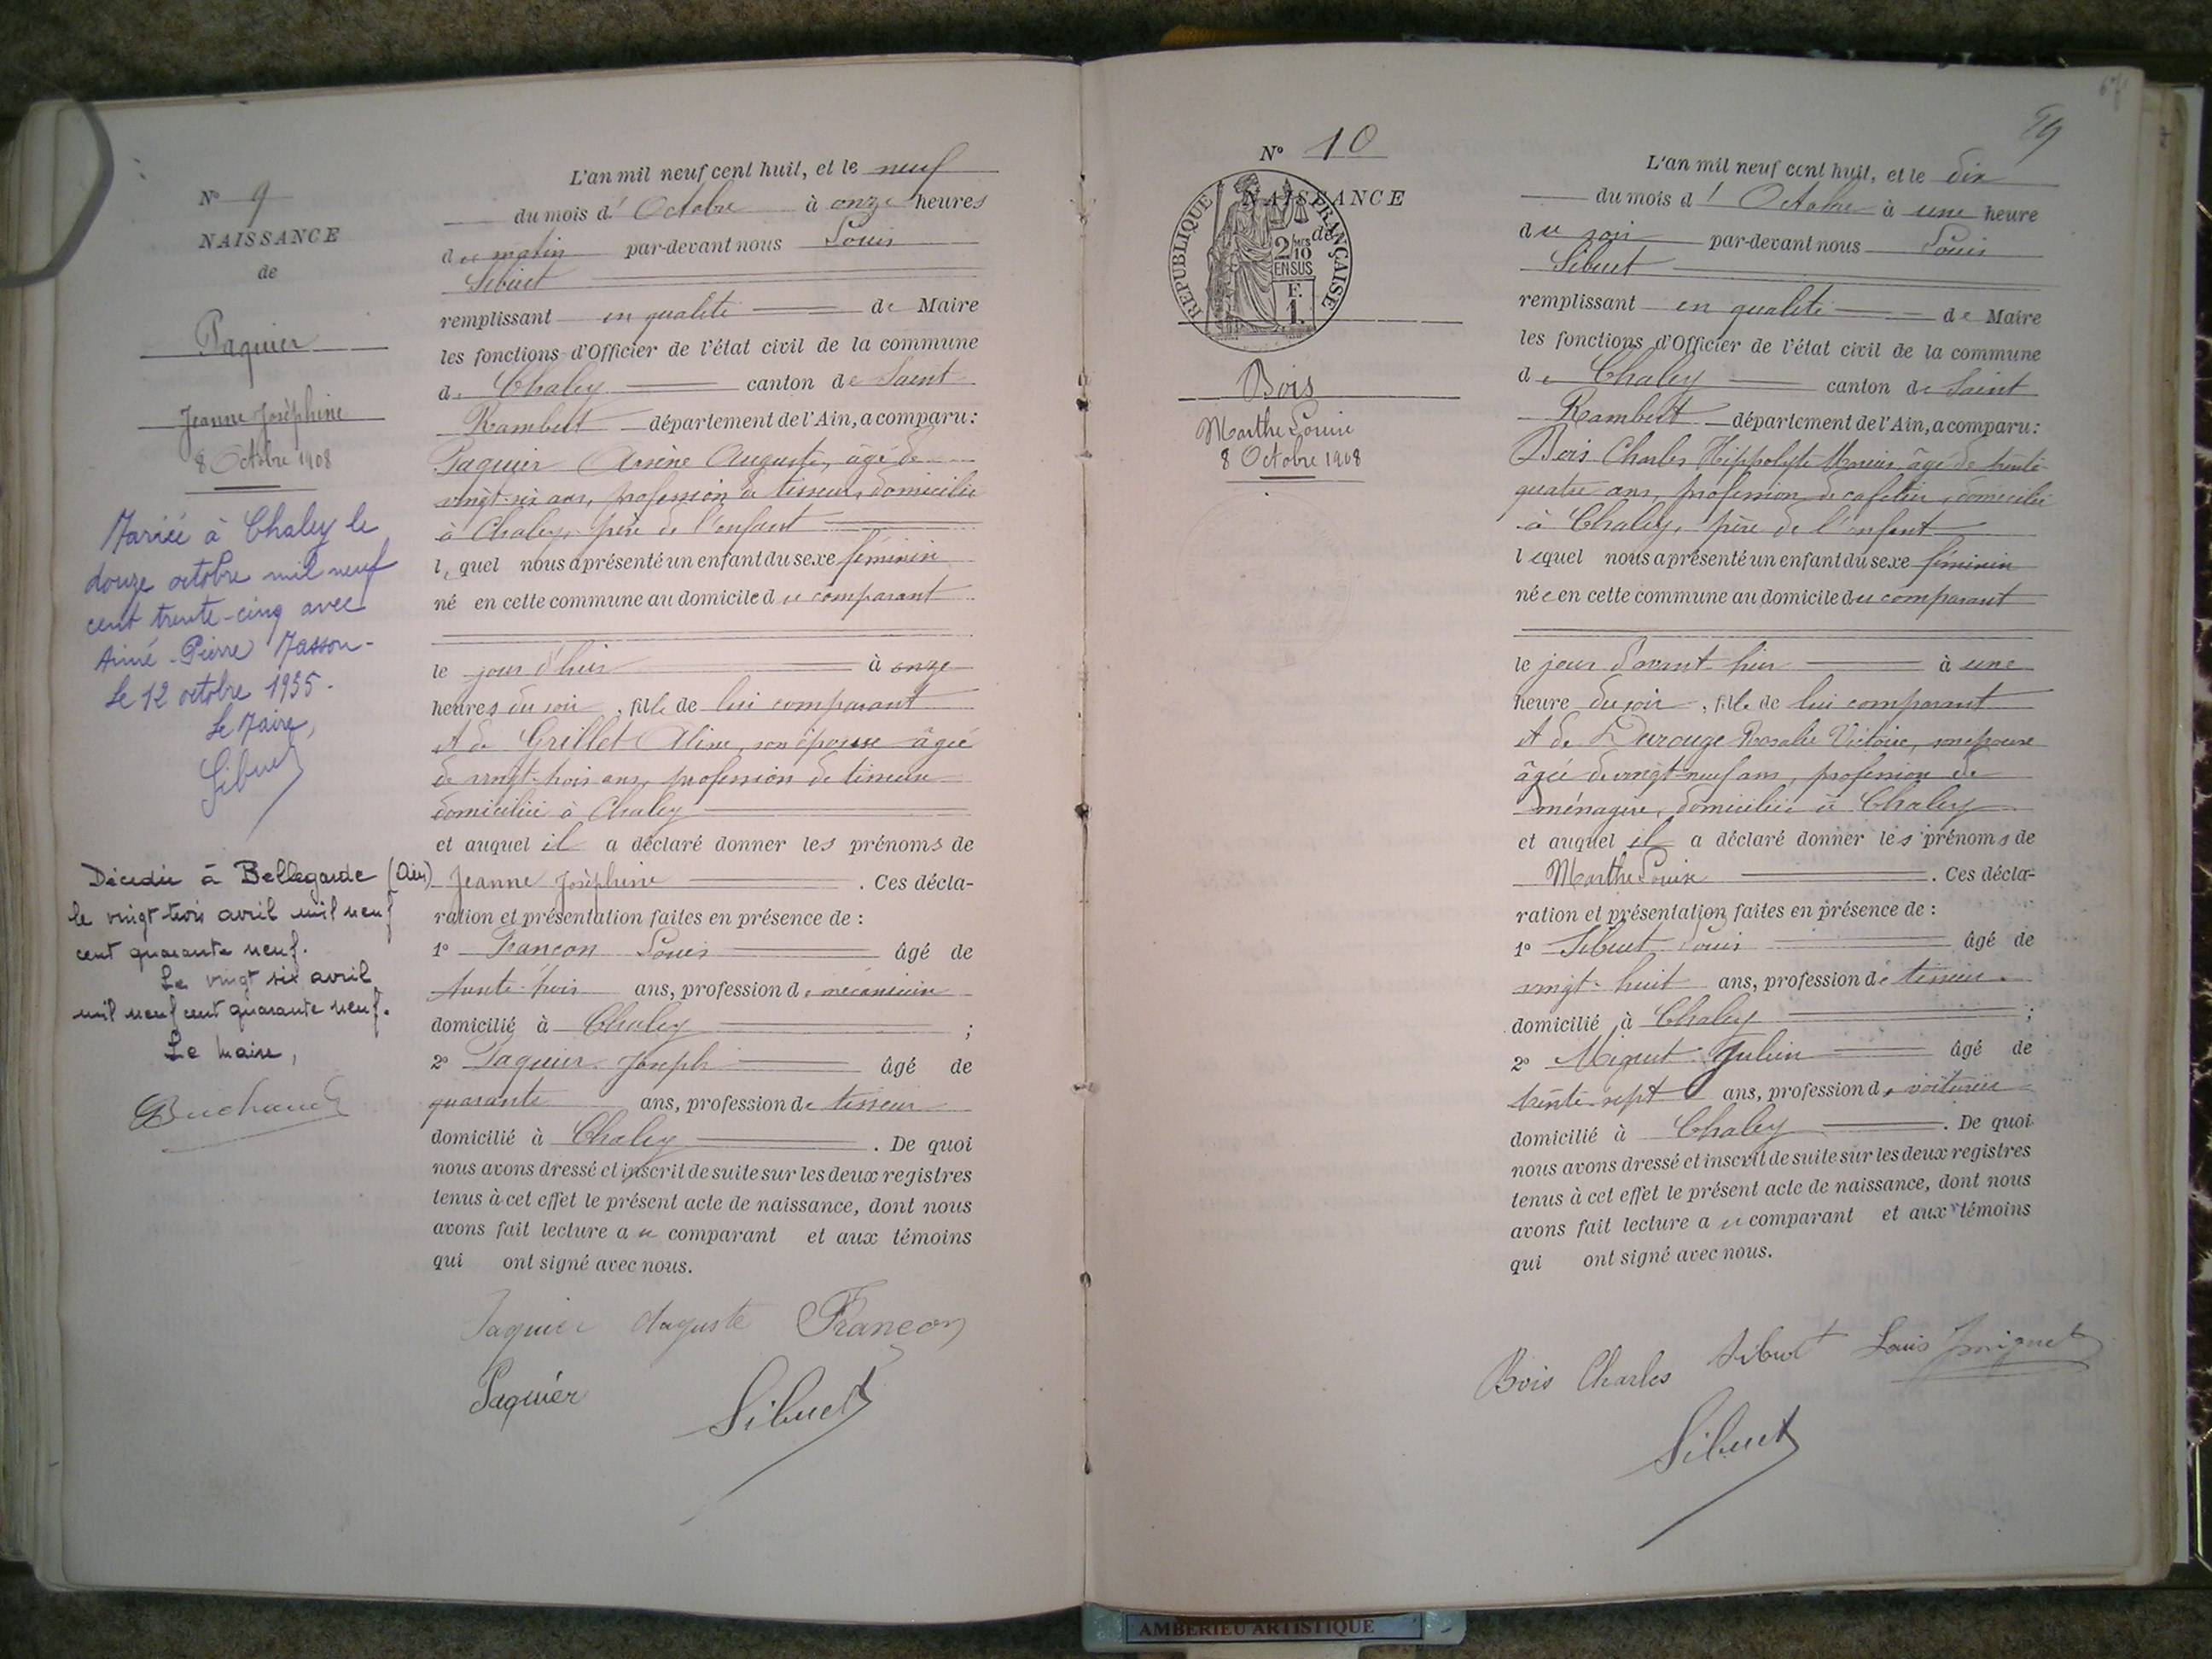 Nº 9
NAISSANCE
de
Paquier
Jeanne Joséphine
8 Octobre 1908
Mariée à Chaley le
douze octobre mil neuf
cent trente-cinq avec
Aimé-Pierre Masson-
Le 12 octobre 1935.
Le Maire,
Sibuet
Décédée à Bellegarde (Ain)
le vingt-trois avril mil neuf
cent quarante neuf.
Le vingt six avril
mil neuf cent quarante neuf.
Le Maire,
L'an mil neuf cent huit, et le neuf
du mois d' Octobre à onze heures
du matin par-devant nous Louis
Sibuet
remplissant en qualité de Maire
les fonctions d'Officier de l'état civil de la commune
de Chaley canton de Saint
Rambert département de l'Ain, a comparu:
Paquier Arsène Auguste, âgé de
vingt-six ans, profession de tisseur, domicilié
à Chaley, père de l'enfant
lequel nous a présenté un enfant du sexe féminin
né en cette commune au domicile du comparant
le jour d'hier à onze
heures du soir, fille de lui comparant
et de Grillet Aline, son épouse âgée
de vingt-trois ans, profession de tisseuse
domiciliée à Chaley
et auquel il a déclaré donner les prénoms de
Jeanne Joséphine. Ces décla-
ration et présentation faites en présence de :
1º Françon Louis âgé de
trente-trois ans, profession de mécanicien
domicilié à Chaley ;
2º Paquier Joseph âgé de
quarante ans, profession de tisseur
domicilié à Chaley. De quoi
nous avons dressé et inscrit de suite sur les deux registres
tenus à cet effet le présent acte de naissance, dont nous
avons fait lecture au comparant et aux témoins
qui ont signé avec nous.
Paquier Auguste Françon
Paquier Sibuet
Nº 10
NAISSANCE
de
RÉPUBLIQUE FRANÇAISE
2/10 EN SUS
F. 1.
Bois
Marthe Louise
8 Octobre 1908
99
L'an mil neuf cent huit, et le dix
du mois d' Octobre à une heure
du soir par-devant nous Louis
Sibuet
remplissant en qualité de Maire
les fonctions d'Officier de l'état civil de la commune
de Chaley canton de Saint
Rambert département de l'Ain, a comparu:
Bois Charles Hippolyte âgé de trente
quatre ans, profession de cafetier, domicilié
à Chaley, père de l'enfant
lequel nous a présenté un enfant du sexe féminin
née en cette commune au domicile du comparant
le jour d'avant-hier à une
heure du soir, fille de lui comparant
et de Derouge Rosalie Victoire, son épouse
âgée de vingt-neuf ans, profession de
ménagère, domiciliée à Chaley
et auquel il a déclaré donner les prénoms de
Marthe Louise. Ces décla-
ration et présentation faites en présence de :
1º Sibuet Louis âgé de
vingt-huit ans, profession de tisseur
domicilié à Chaley ;
2º Miguet Julien âgé de
trente-sept ans, profession de voiturier
domicilié à Chaley. De quoi
nous avons dressé et inscrit de suite sur les deux registres
tenus à cet effet le présent acte de naissance, dont nous
avons fait lecture au comparant et aux témoins
qui ont signé avec nous.
Bois Charles Sibuet Louis Jmiguet
Sibuet
AMBERIEU ARTISTIQUE